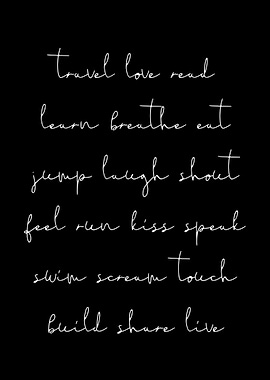 travel love read
learn breathe eat
jump laugh shout
feel run kiss speak
swim scream touch
build share live